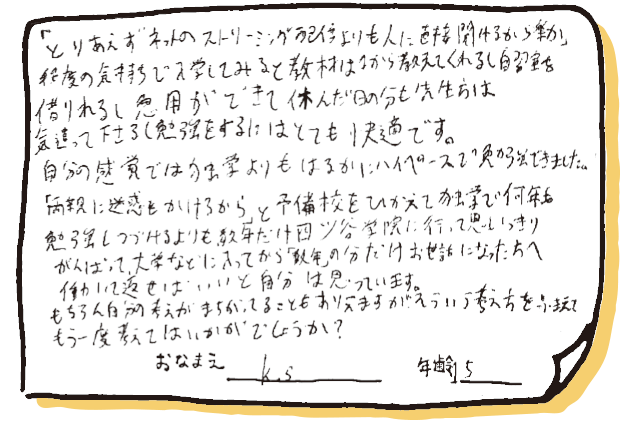 「とりあえずネットのストリーミング配信よりも人に直接聞けるから楽か」
程度の気持ちで入学してみると教材は1から教えてくれるし自習室も
借りれるし急用ができて休んだ日の分も先生方は
気遣って下さるし勉強をするにはとても快適です。
自分の感覚では独学よりもはるかにハイペースで勉強できました。
「両親に迷惑をかけるから」と予備校をひかえて独学で何年も
勉強しつづけるよりも数年だけ四ツ谷学院に行って思いっきり
がんばって、大学などに入ってから「数年」の分だけお世話になった方へ
働いて返せばいいと自分は思っています。
もちろん自分の考えがまちがってることもありえますがそういう考え方をふまえて
もう一度考えてはいかがでしょうか?
おなまえ k.s 年齢 15